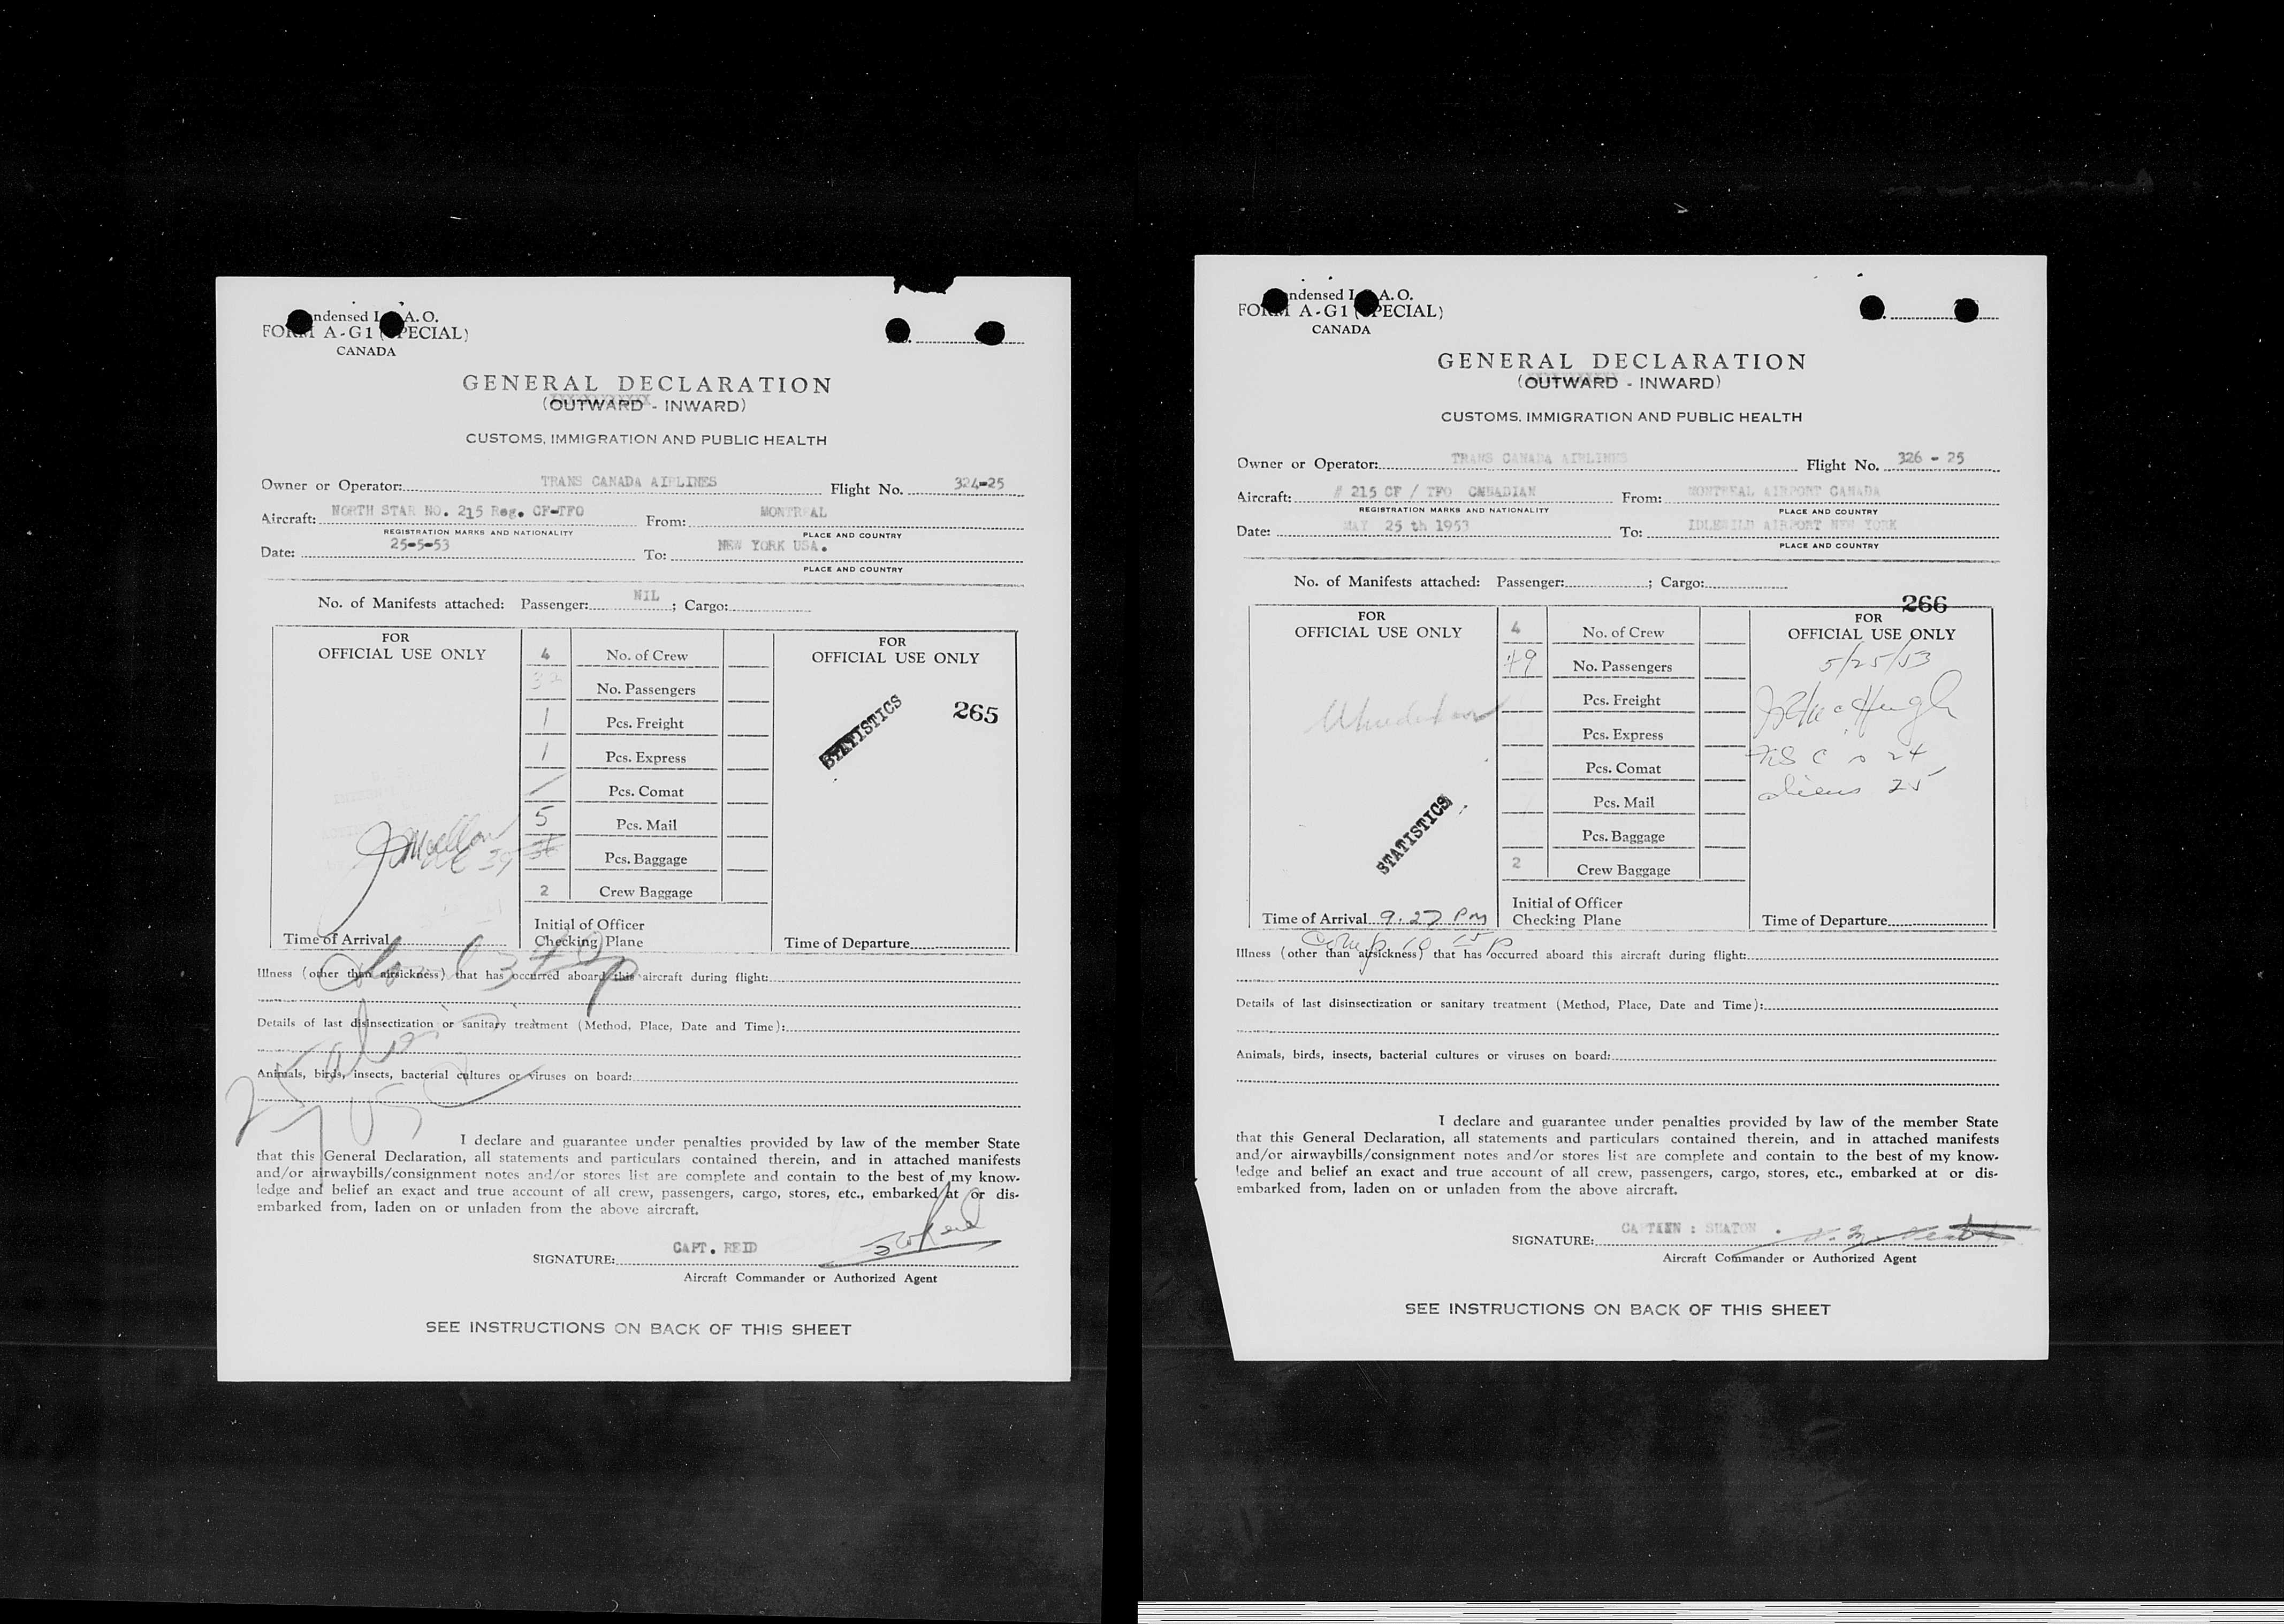 ndensed I. A. O.
FORM A-G1 (SPECIAL)
CANADA
GENERAL DECLARATION
(OUTWARD - INWARD)
CUSTOMS, IMMIGRATION AND PUBLIC HEALTH
Owner or Operator: TRANS CANADA AIRLINES Flight No. 324-25
Aircraft: NORTH STAR NO. 215 Reg. CF-TFO From: MONTREAL
REGISTRATION MARKS AND NATIONALITY PLACE AND COUNTRY
Date: 25-5-53 To: NEW YORK USA.
PLACE AND COUNTRY
No. of Manifests attached: Passenger: NIL ; Cargo:
FOR OFFICIAL USE ONLY
4 No. of Crew
No. Passengers
1 Pcs. Freight
1 Pcs. Express
Pcs. Comat
5 Pcs. Mail
Pcs. Baggage
2 Crew Baggage
Initial of Officer
Checking Plane
Time of Arrival
FOR
OFFICIAL USE ONLY
STATISTICS 265
Time of Departure
Illness (other than airsickness) that has occurred aboard this aircraft during flight:
Details of last disinsectization or sanitary treatment (Method, Place, Date and Time):
Animals, birds, insects, bacterial cultures or viruses on board:
I declare and guarantee under penalties provided by law of the member State
that this General Declaration, all statements and particulars contained therein, and in attached manifests
and/or airwaybills/consignment notes and/or stores list are complete and contain to the best of my know-
ledge and belief an exact and true account of all crew, passengers, cargo, stores, etc., embarked at or dis-
embarked from, laden on or unladen from the above aircraft.
SIGNATURE: CAPT. REID
Aircraft Commander or Authorized Agent
SEE INSTRUCTIONS ON BACK OF THIS SHEET
ndensed I. A. O.
FORM A-G1 (SPECIAL)
CANADA
GENERAL DECLARATION
(OUTWARD - INWARD)
CUSTOMS, IMMIGRATION AND PUBLIC HEALTH
Owner or Operator: TRANS CANADA AIRLINES Flight No. 326 - 25
Aircraft: # 215 CF / TFO CNBADIAN From: MONTREAL AIRPORT CANADA
REGISTRATION MARKS AND NATIONALITY PLACE AND COUNTRY
Date: MAY 25 th 1953 To: IDLEWILD AIRPORT NEW YORK
PLACE AND COUNTRY
No. of Manifests attached: Passenger: ; Cargo:
266
FOR
OFFICIAL USE ONLY
STATISTICS
Time of Arrival 9.27 PM
4 No. of Crew
49 No. Passengers
Pcs. Freight
Pcs. Express
Pcs. Comat
Pcs. Mail
Pcs. Baggage
2 Crew Baggage
Initial of Officer
Checking Plane
FOR
OFFICIAL USE ONLY
5/25/53
24
aliens 25
Time of Departure
Illness (other than airsickness) that has occurred aboard this aircraft during flight:
Details of last disinsectization or sanitary treatment (Method, Place, Date and Time):
Animals, birds, insects, bacterial cultures or viruses on board:
I declare and guarantee under penalties provided by law of the member State
that this General Declaration, all statements and particulars contained therein, and in attached manifests
and/or airwaybills/consignment notes and/or stores list are complete and contain to the best of my know-
ledge and belief an exact and true account of all crew, passengers, cargo, stores, etc., embarked at or dis-
embarked from, laden on or unladen from the above aircraft.
SIGNATURE: CAPTAIN : SEATON .
Aircraft Commander or Authorized Agent
SEE INSTRUCTIONS ON BACK OF THIS SHEET